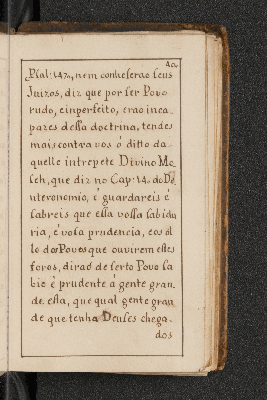 40
Psal: 147, nem conheserao seus
Juizos, diz que por ser Povo
rudo, e inperfeito, erao inca-
pazes dessa doctrina, tendes
mais contra vos ó ditto da-
quelle intrepete Divino Mo-
seh, que diz no Cap: 14. do De-
uteronomio, é guardareis é
sabreis que esta vossa sabidu
ria, é vosa prudencia, eos ól
lo dos Povos que ouvirem estes
foros, dirao de serto Povo sa
bio é prudente á gente gran-
de, esta, que qual gente gran
de que tenha Deuses chega-
dos